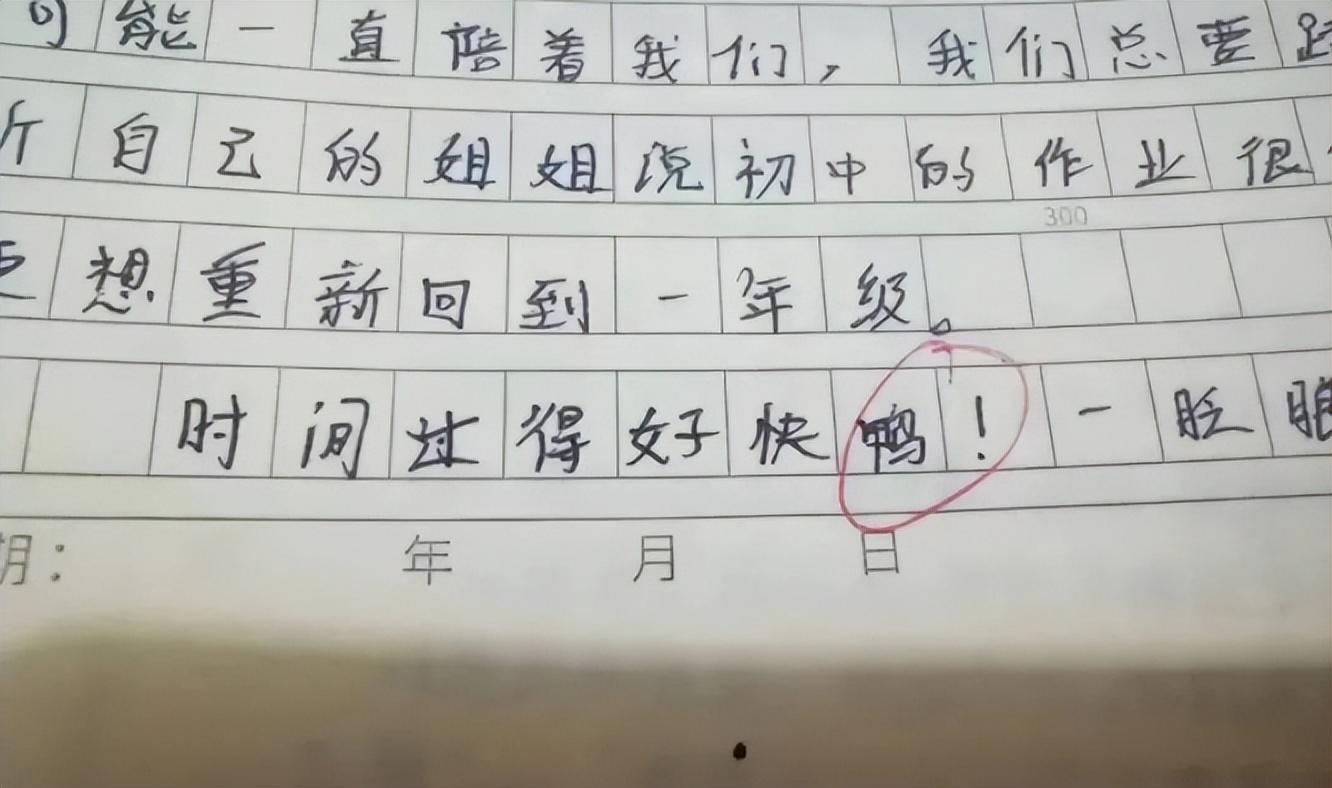 可能一直陪着我们，我们总要
自己的姐姐说初中的作业很
300
想重新回到一年级。
时间过得好快鸭！一眨眼
期： 年 月 日